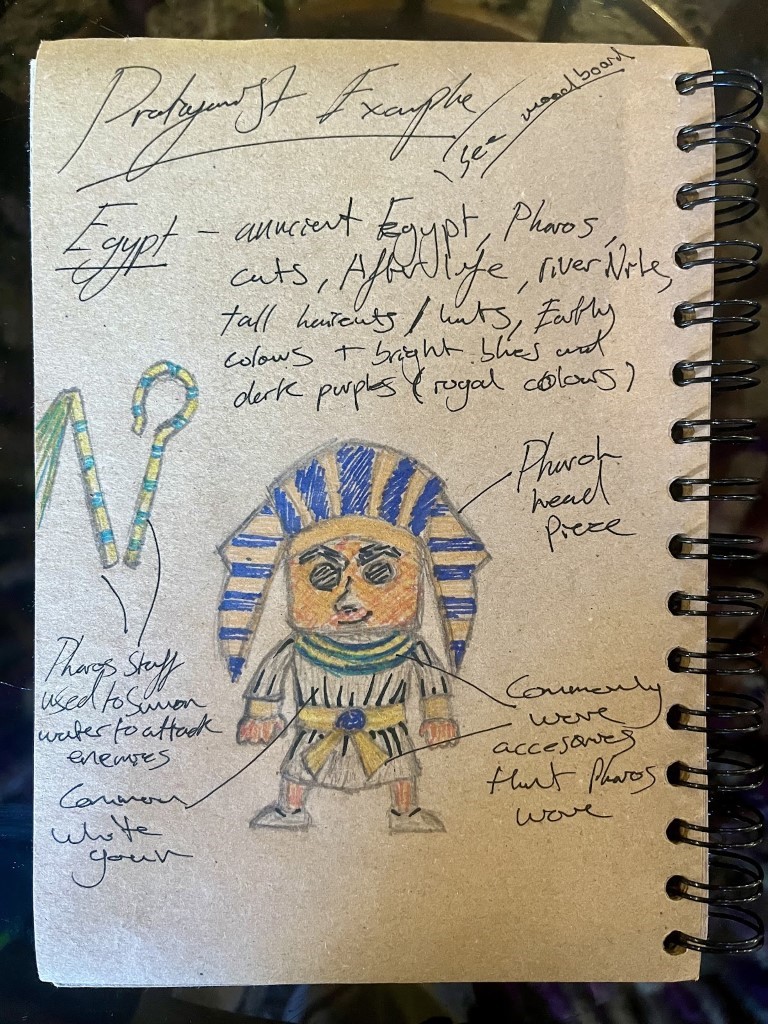 Protagonist Example
(see moodboard
Egypt - anncient Egypt, Pharos,
cats, Afterlife, river Nile,
tall haircuts / hats, Earthy
colours + bright blues and
dark purples (royal colours)
Pharoh
head
pieze
Pharos staff
used to sumon
water to attack
enemies
Common
white
gown
Commonly
wore
accesories
that Pharos
wore